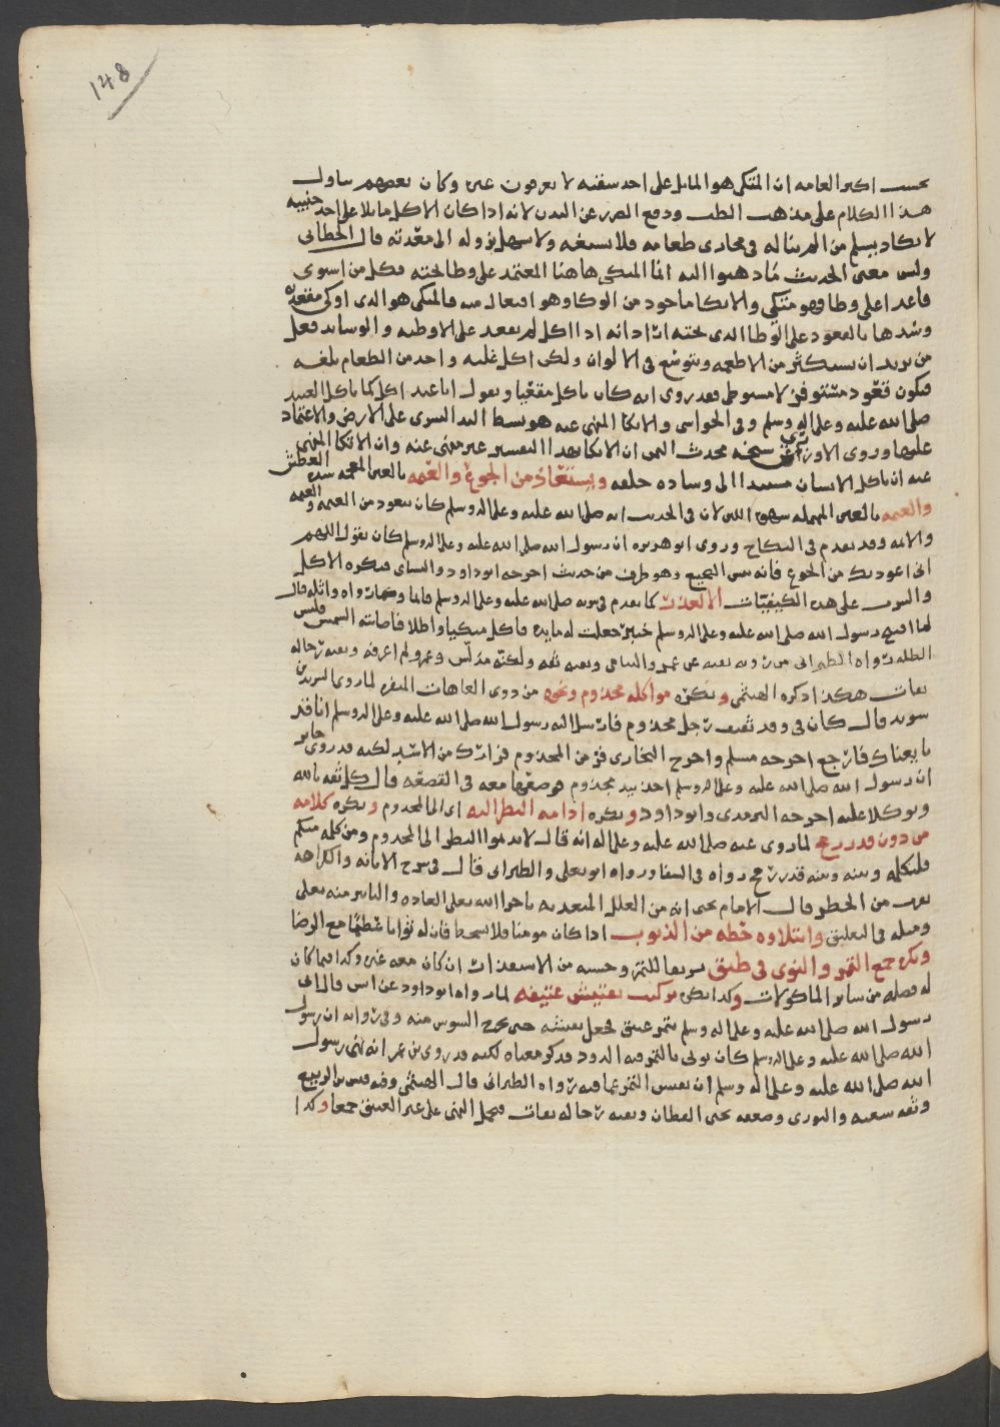 148
يحسب اكثر العامه ان المتكي هو المايل على احد شقيه لا يعرفون غيره وكان بعضهم يتاول
هذا الكلام على مذهب الطب ودفع الضرر عن البدن لانه اذا كان الاكل مايلا على احد جنبيه
لا يكاد يسلم من الم يناله في مجاري طعامه فلا يسيغه ولا يسهل نزوله الى معدته قال الخطابي
وليس معنى الحديث ما ذهبوا اليه انما المتكي هاهنا المعتمد على وطا تحته فكل من استوى
قاعدا على وطا فهو متكي والاتكا ماخوذ من الوكا وهو افتعال منه فالمتكي هو الذي اوكى مقعدته
وشدها بالقعود على الوطا الذي تحته اراد انه اذا اكل لم يقعد على الاوطيه والوسايد فعل
من يريد ان يستكثر من الاطعمه ويتوسع في الالوان ولكن اكل علقه واخذ من الطعام بلغه
فيكون قعود مستوفز لا مستوطى فقد روى انه كان ياكل مقعيا ويقول انا عبد اكل كما ياكل العبد
صلى الله عليه وعلى اله وسلم وفي الحواشي والاتكا المنهي عنه هو بسط اليد اليسرى على الارض والاعتماد
عليها وروى الاوزاعي عن شيخه محدث اليمن ان الاتكا بهذا التفسير غير منهي عنه وان الاتكا المنهي
عنه ان ياكل الانسان مستندا الى وساده خلفه ويستعاذ من الجوع والغيمه بالغين المعجمه شده العطش
والعيمه بالعين المهمله شهوه اللبن لان في الحديث انه صلى الله عليه وعلى اله وسلم كان يتعوذ من العيمه والغيمه
والايمه وقد تقدم في النكاح وروى ابو هريره ان رسول الله صلى الله عليه وعلى اله وسلم كان يقول اللهم
اني اعوذ بك من الجوع فانه بئس الضجيع وهو طرف من حديث اخرجه ابو داود والنساي فيكره الاكل
والشرب على هذه الكيفيات الا لعذر كما تقدم في شربه صلى الله عليه وعلى اله وسلم قايما واثله قال
لما افتتح رسول الله صلى الله عليه وعلى اله وسلم خيبر جعلت له مايده فاكل متكيا واطلا فاصابته الشمس فلبس
الظله رواه الطبراني من بقيه عن عمر وبقيه ثقه ولكنه مدلس وعمر لم اعرفه وبقيه رجاله
ثقات هكذا ذكره الهيثمي ويكره مواكله مجذوم ونحوه من ذوي العاهات المنفره لما روى الشريد بن
سويد قال كان في وفد ثقيف رجل مجذوم فارسل اليه رسول الله صلى الله عليه وعلى اله وسلم انا قد
بايعناك فارجع اخرجه مسلم واخرج البخاري فر من المجذوم فرارك من الاسد لكنه قد روى جابر
ان رسول الله صلى الله عليه وعلى اله وسلم اخذ بيد مجذوم فوضعها معه في القصعه قال كل ثقه بالله
وتوكلا عليه اخرجه الترمذي وابو داود ويكره ادامه النظر اليه اي الى المجذوم ويكره كلامه
من دون قدر رمح لما روي عنه صلى الله عليه وعلى اله انه قال لا تديموا النظر الى المجذوم ومن كلمه منكم
فليكلمه وبينه وبينه قدر رمح رواه في الشفا ورواه ابو يعلى والطبراني قال في شرح الابانه والكراهه
تقرب من الحظر قال الامام يحيى انه من العلل المتعديه باجرا الله تعالى العاده والتاثير منه تعالى
ومثله في التعليق وابتلاوه حطه من الذنوب اذا كان مومنا فلا يسخط فان له ثوابا عظيما مع الرضا
ويكره جمع التمر والنوى في طبق تشريفا للتمر وخشيه من الاستقذار ان كان معه غيره وكذا فيما كان
له فضله من ساير الماكولات وكذا يكره تفتيش عتيقه لما رواه ابو داود عن انس قال اتي
رسول الله صلى الله عليه وعلى اله وسلم بتمر عتيق فجعل يفتشه حتى يخرج السوس منه وفي روايه ان رسول
الله صلى الله عليه وعلى اله وسلم كان يوتى بالتمر فيه الدود فذكر معناه لكنه قد روي بن عمر انه نهى رسول
الله صلى الله عليه وعلى اله وسلم ان يفتش التمر عما فيه رواه الطبراني قال الهيثمي وفيه قيس بن الربيع
وثقه شعبه والثوري وضعفه يحيى القطان وبقيه رجاله ثقات فيحمل النهي على غير العتيق جمعا وكذا